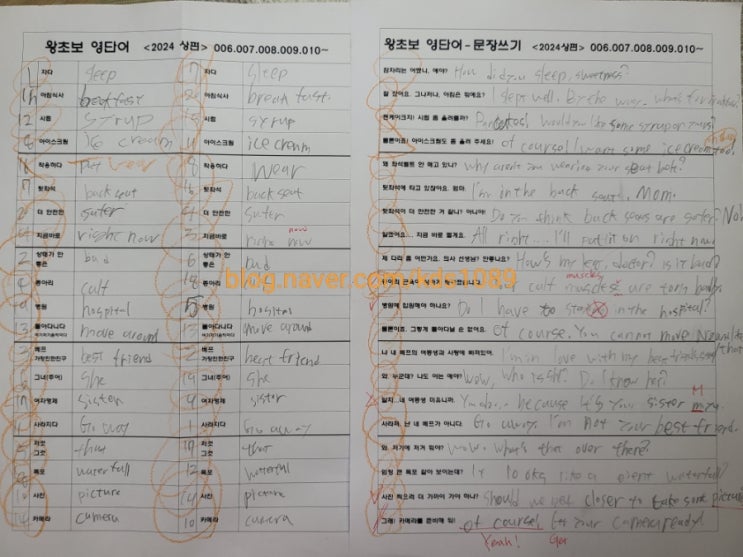 왕초보 영단어 <2024 상편> 006.007.008.009.010~
자다 sleep 7 자다 sleep
아침식사 breakfast 아침식사 breakfast.
12 시럽 syrup 시럽 syrup
아이스크림 ice cream 아이스크림 ice cream
착용하다 wear 8 착용하다 wear
뒷좌석 back seat 뒷좌석 back seat
더 안전한 safer 더 안전한 safer
지금바로 right now 3 지금바로 right now
now
2 상태가 안 좋은 bad 6 상태가 안 좋은 bad
종아리 calf 18 종아리 calf
병원 hospital 5 병원 hospital
돌아다니다 move around 돌아다니다 move around
베프 best friend 2 베프 best friend
그녀(주어) she 그녀(주어) she
여자형제 sister 여자형제 sister
사라지다 Go away 사라지다 Go away
저것 그것 that 저것 그것 that
폭포 waterfall 12 폭포 waterfall
사진 picture 사진 picture
14 카메라 camera 10 카메라 camera
왕초보 영단어 - 문장쓰기 <2024상편> 006.007.008.009.010~
잠자리는 어땠니, 얘야? How did you sleep, sweetness?
잘 잤어요. 그나저나, 아침은 뭐예요? I slept well. By the way, what for
팬케이크지! 시럽 좀 줄까? would you like some syrup on
물론이죠! 아이스크림도 좀 주세요! of course I want some ice cream too!
왜 좌석벨트 안 매고 있니? why aren't you wearing your seat belt?
뒷좌석에 타고 있잖아요. 엄마. I'm in the back seat, Mom.
뒷좌석이 더 안전한 거 같니? 아니야! Do you think back seats are safer? No!
알겠어요... 지금 바로 맬게요. All right.... I'll put it on right now
제 다리 좀 어떤가요. 의사 선생님? 안좋나요? How's my leg, doctor? Is it bad?
muscles
calf muscles are torn badly.
병원에 입원해야 하나요? Do I have to stay in the hospital?
물론이죠. 그렇게 돌아다닐 순 없어요. of course. You cannot move around like that
나 네 베프의 여동생과 사랑에 빠져있어. I'm in love with my best friend's
와, 누군데? 나도 아는 애야? Wow, who is she? Do I know her?
알지...네 여동생 미유니까. because it's your sister
M
사라져. 난 네 베프가 아니다. Go away. I'm not your best friend.
와. 저기에 저거 뭐야? wow. what's that over there?
엄청 큰 폭포 같아 보이는데? It looks like a giant waterfall?
사진 찍으러 더 가까이 가야 하나? Should we get closer to take some picture
그래! 카메라를 준비해 둬! of course! Get your camera ready!
Yeah! Get
blog.naver.com/kds1089